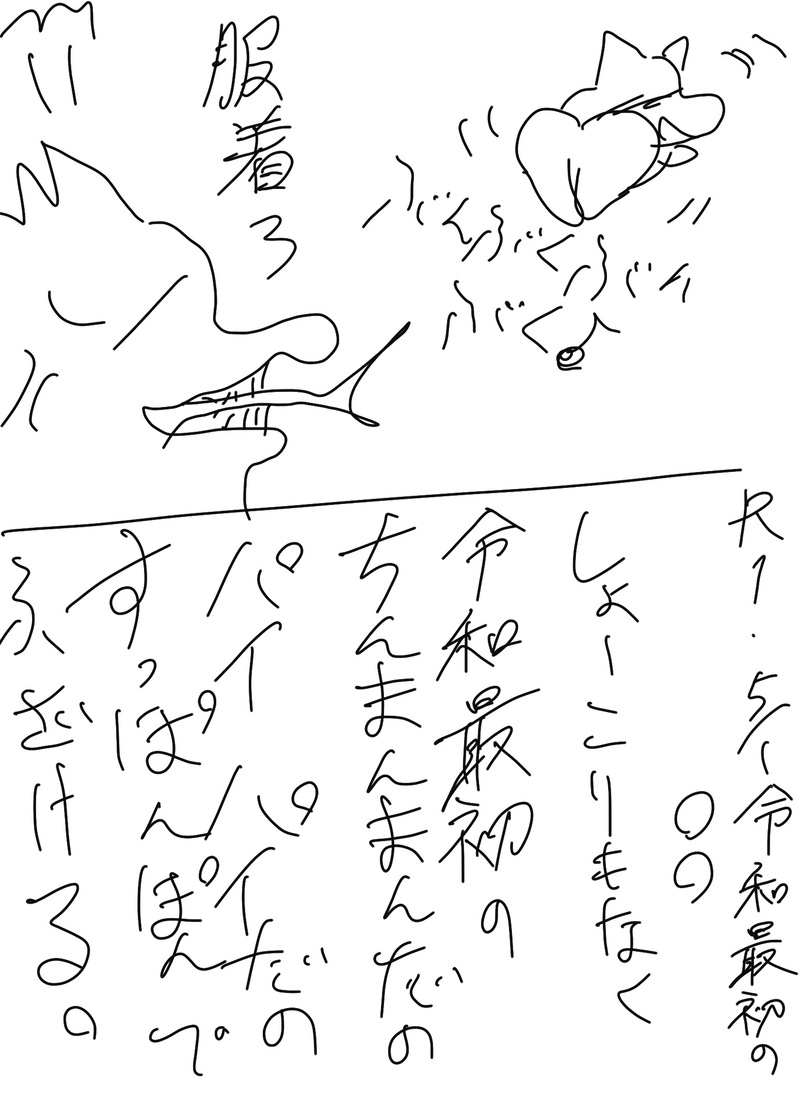 服着ろ
R1.5/1令和最初の
○○
しょーこりもなく
令和最初の
ちんまんまんだの
パイパイだの
すっぽんぽんで
ふざける。